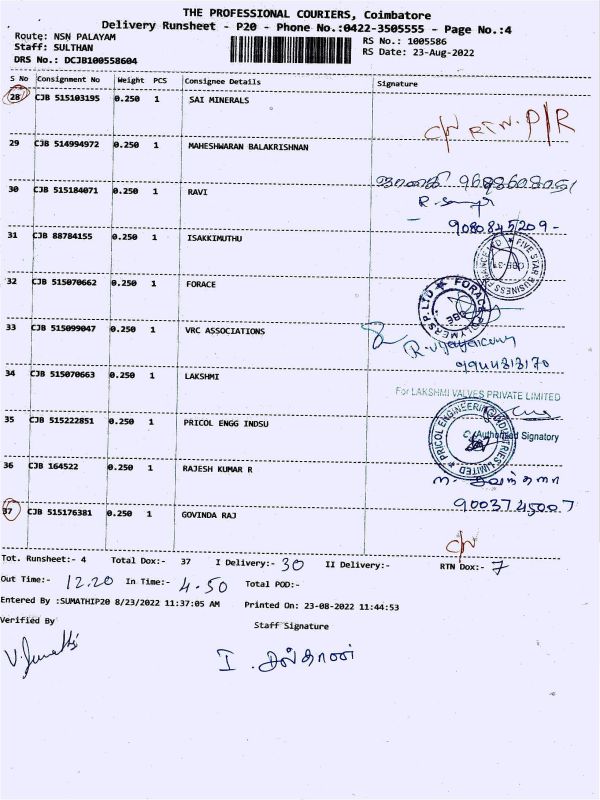 THE PROFESSIONAL COURIERS, Coimbatore
Delivery Runsheet - P20 - Phone No.:0422-3505555 - Page No.:4
Route: NSN PALAYAM
RS No.: 1005586
Staff: SULTHAN
RS Date: 23-Aug-2022
DRS No.: DCJB100558604
S No Consignment No Weight PCS Consignee Details Signature
28 CJB 515103195 0.250 1 SAI MINERALS
P/R
29 CJB 514994972 0.250 1 MAHESHWARAN BALAKRISHNAN
30 CJB 515184071 0.250 1 RAVI
9080845209 -
31 CJB 88784155 0.250 1 ISAKKIMUTHU
FIVE STAR BUSINESS
32 CJB 515070662 0.250 1 FORACE
FORACE POLYMERS P. LTD
CBE
33 CJB 515099047 0.250 1 VRC ASSOCIATIONS
34 CJB 515070663 0.250 1 LAKSHMI
For LAKSHMI VALVES PRIVATE LIMITED
Authorised Signatory
35 CJB 515222851 0.250 1 PRICOL ENGG INDSU
PRICOL ENGINEERING INDUSTRIES LIMITED
36 CJB 164522 0.250 1 RAJESH KUMAR R
9003745007
37 CJB 515176381 0.250 1 GOVINDA RAJ
Tot. Runsheet:- 4 Total Dox:- 37 I Delivery:- 30 II Delivery:- RTN Dox:- 7
Out Time:- 12.20 In Time:- 4.50 Total POD:-
Entered By :SUMATHIP20 8/23/2022 11:37:05 AM Printed On: 23-08-2022 11:44:53
Verified By
Staff Signature
I. சுல்தான்